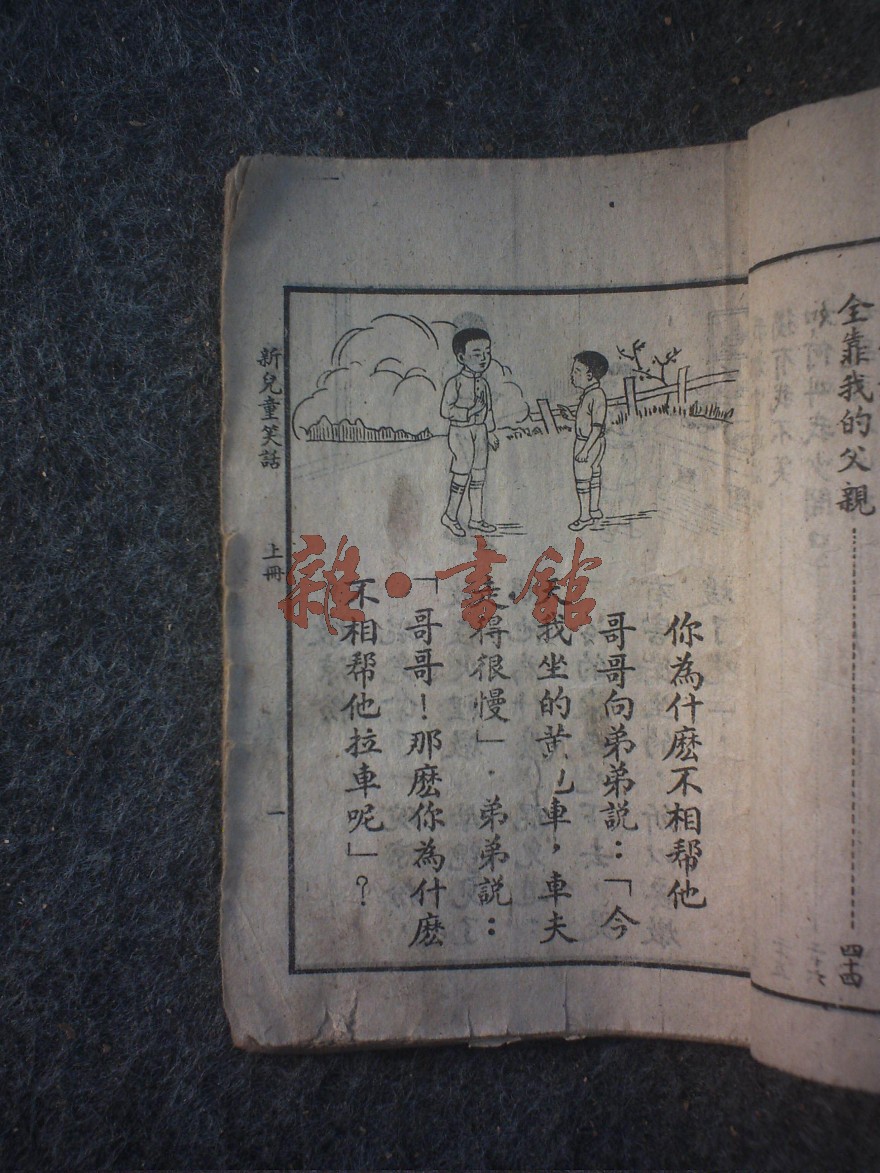 全靠我的父親
四十四
你為什麽不相帮他
哥哥向弟弟説：「今
天我坐的黃包車，車夫
走得很慢」．弟弟説：
「哥哥！那麽你為什麽
不相帮他拉車呢」？
新兒童笑話
上冊
一
雜·書館